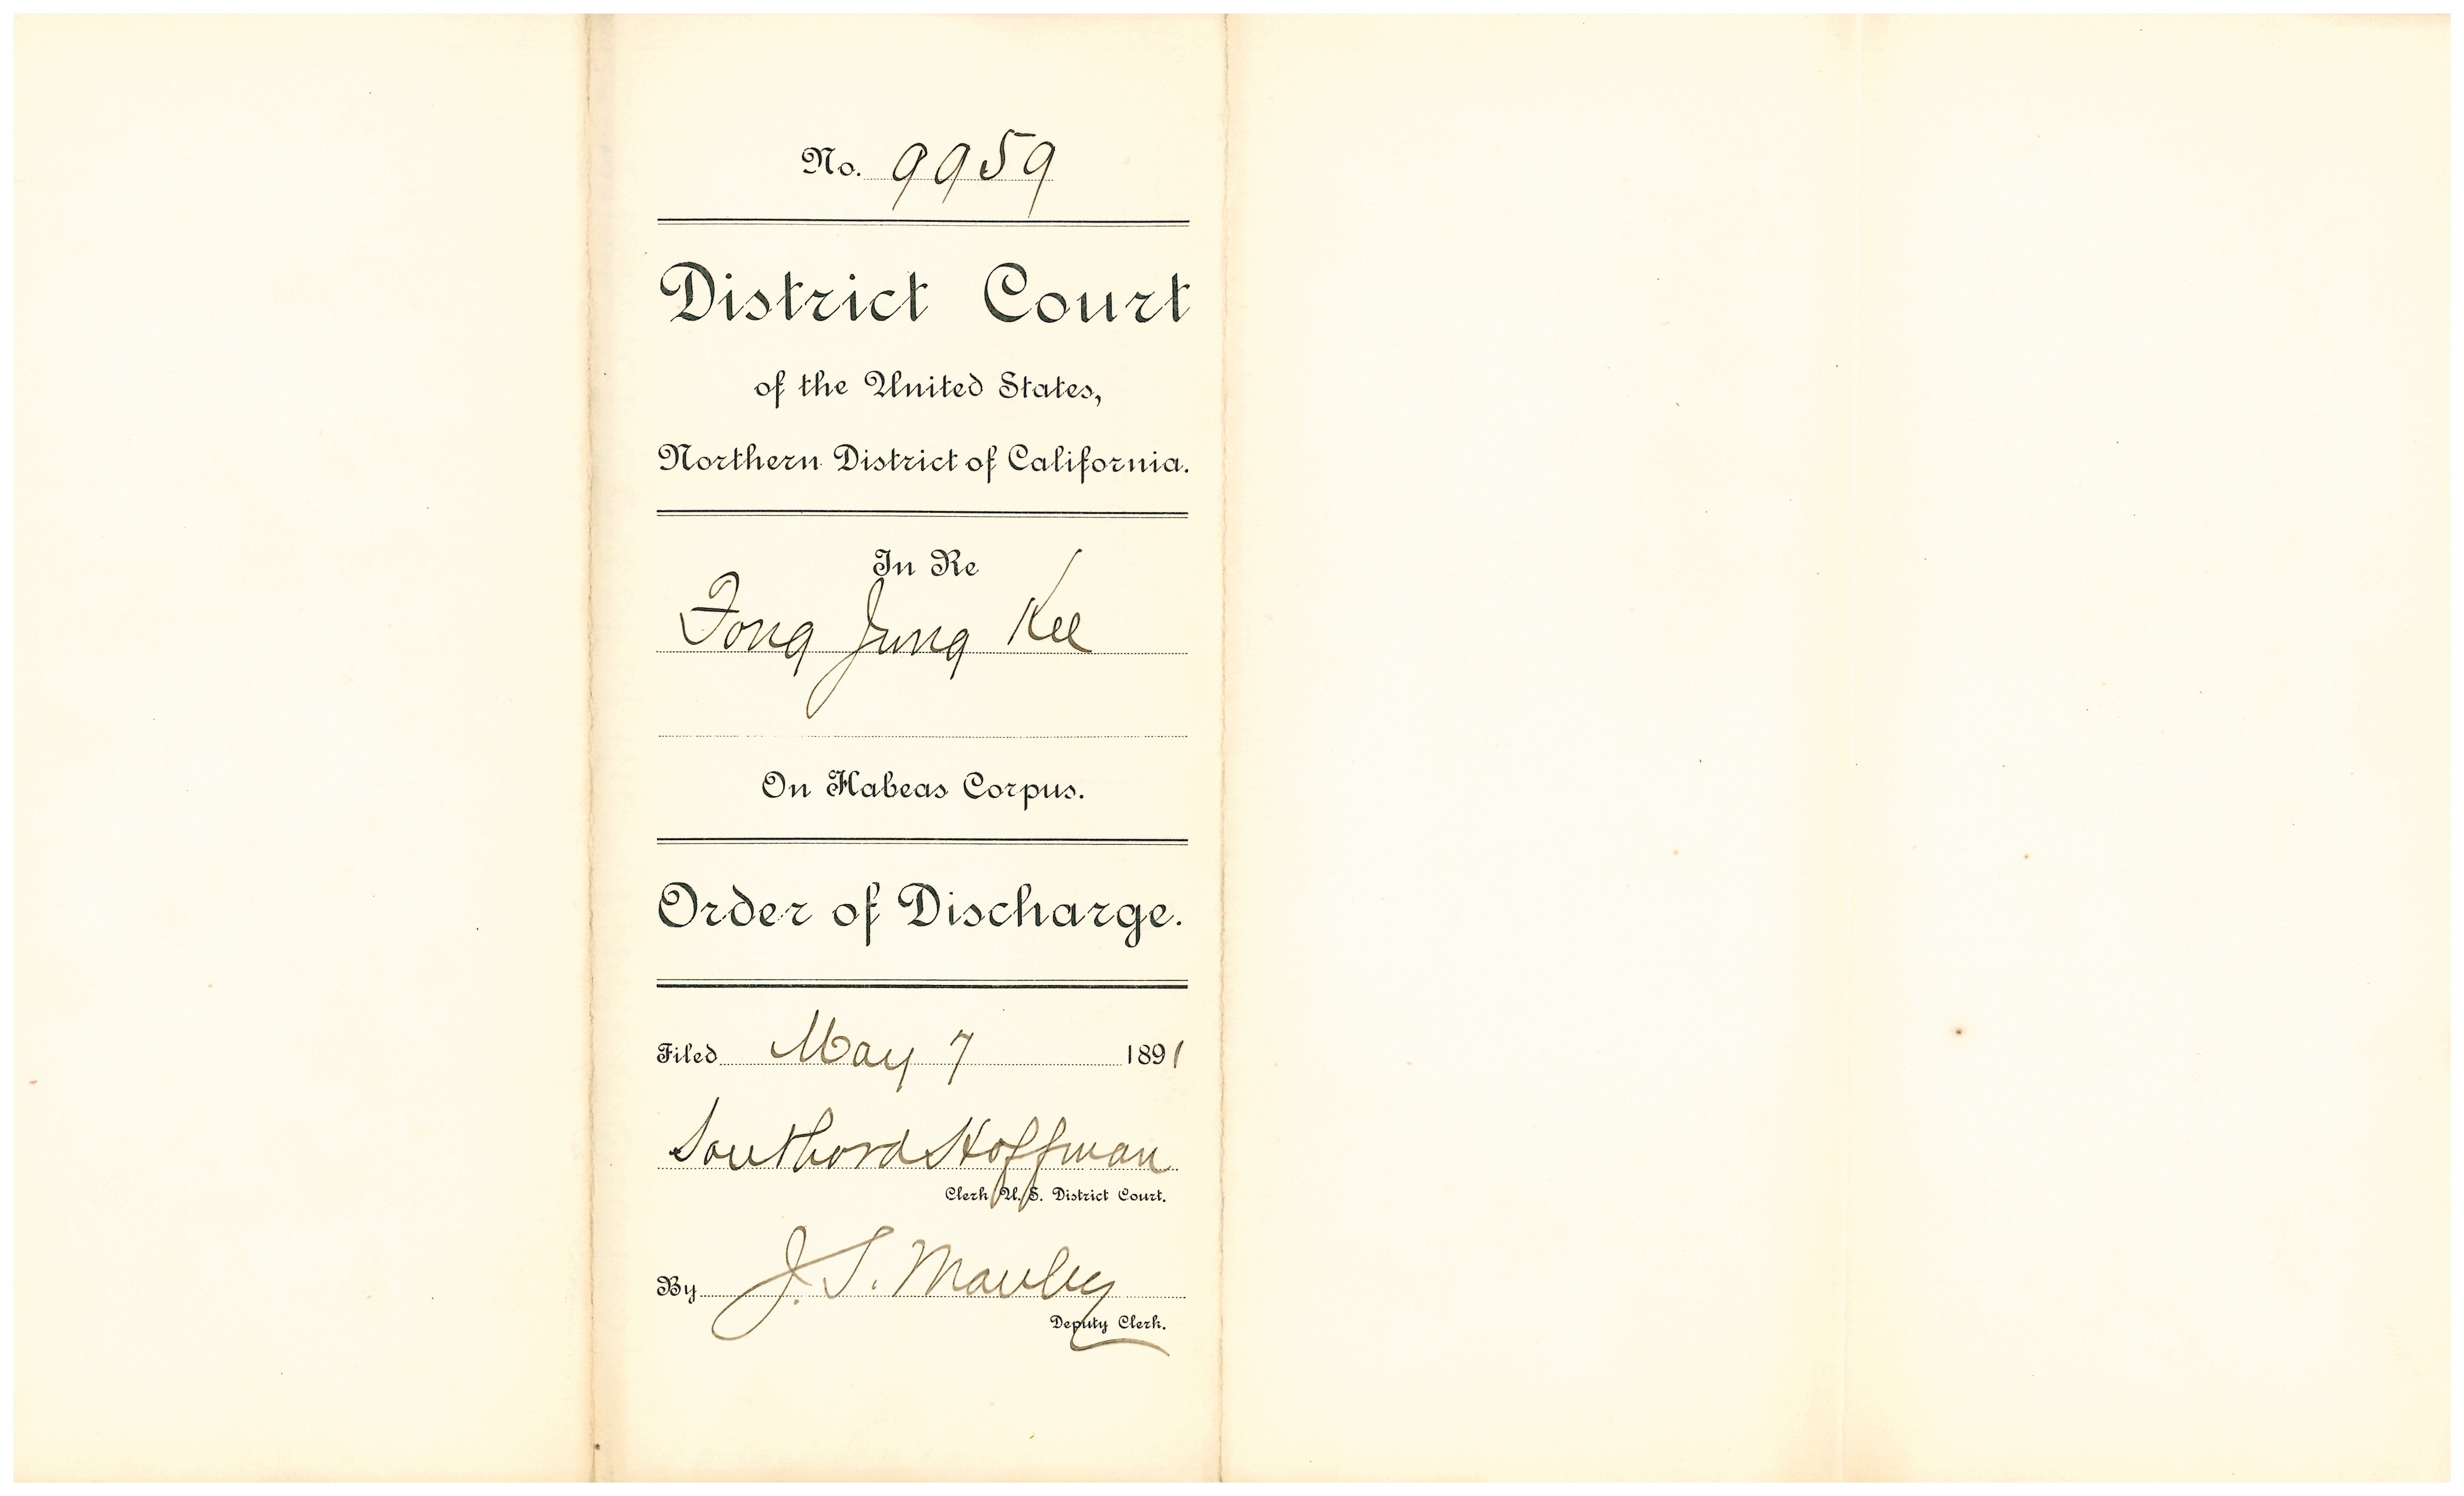 No. 9959
District Court
of the United States,
Northern District of California.
In Re
Fong Jung Kee
On Habeas Corpus.
Order of Discharge.
Filed May 7 1891
Southard Hoffman
Clerk U. S. District Court.
By J. S. Manley
Deputy Clerk.